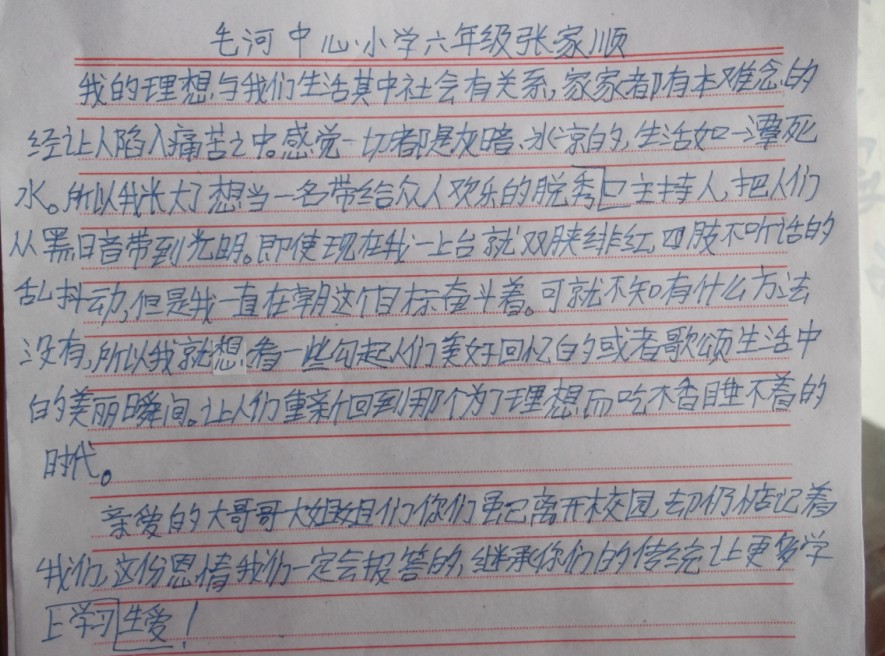 毛河中心小学六年级张家顺
我的理想,与我们生活其中社会有关系,家家都有本难念的
经让人陷入痛苦之中。感觉一切都是灰暗、冰凉的,生活如一潭死
水。所以我长大了想当一名带给众人欢乐的脱秀口主持人,把人们
从黑暗带到光明。即使现在我一上台就双颊绯红,四肢不听话的
乱抖动,但是我一直在朝这个目标奋斗着。可就不知有什么方法
没有,所以我就想,看一些勾起人们美好回忆的或者歌颂生活中
的美丽瞬间。让人们重新回到那个为了理想而吃不香睡不着的
时代。
亲爱的大哥哥大姐姐们你们虽已离开校园,却仍惦记着
我们,这份恩情我们一定会报答的,继承你们的传统让更多学
上学习生爱!